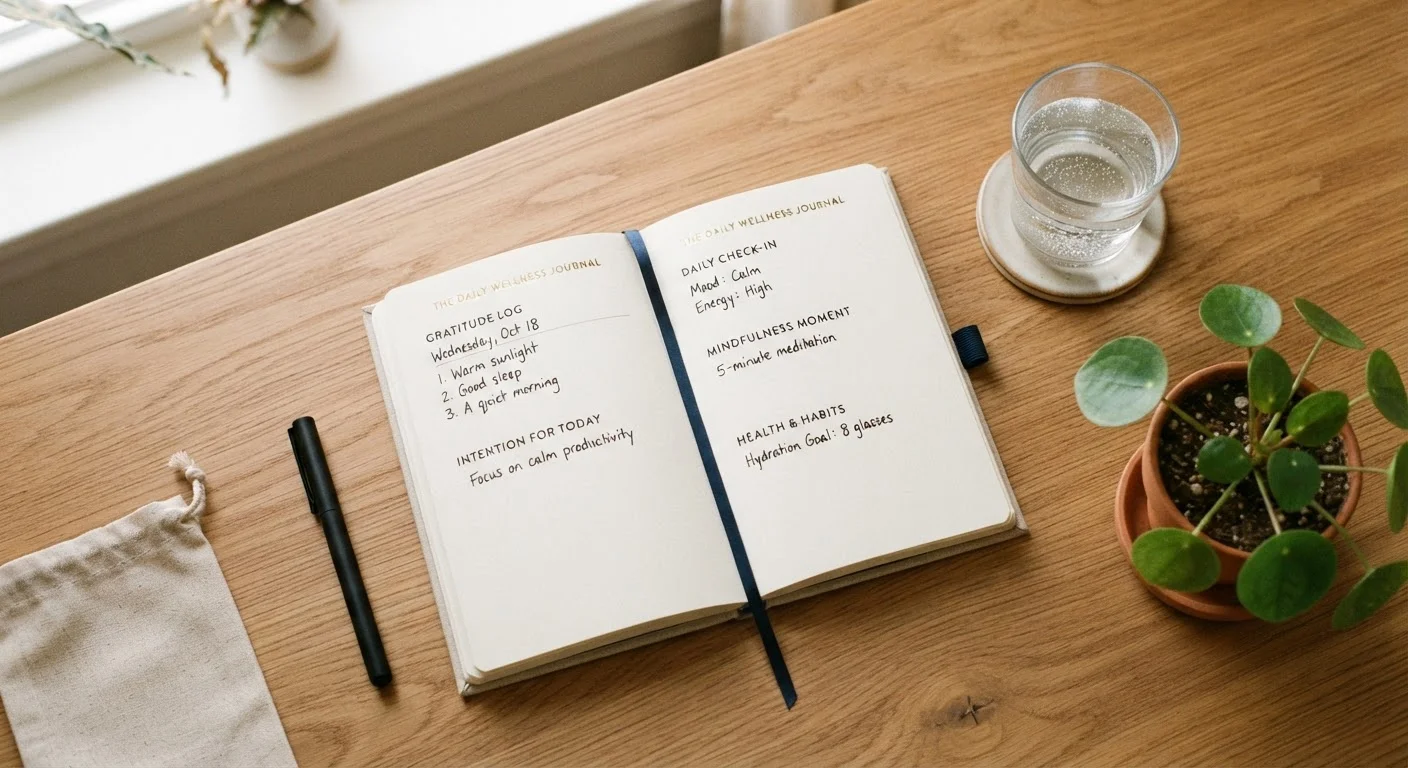 THE DAILY WELLNESS JOURNAL
GRATITUDE LOG
Wednesday, Oct 18
1. Warm sunlight
2. Good sleep
3. A quiet morning
INTENTION FOR TODAY
Focus on calm productivity
THE DAILY WELLNESS JOURNAL
DAILY CHECK-IN
Mood: Calm
Energy: High
MINDFULNESS MOMENT
5-minute meditation
HEALTH & HABITS
Hydration Goal: 8 glasses